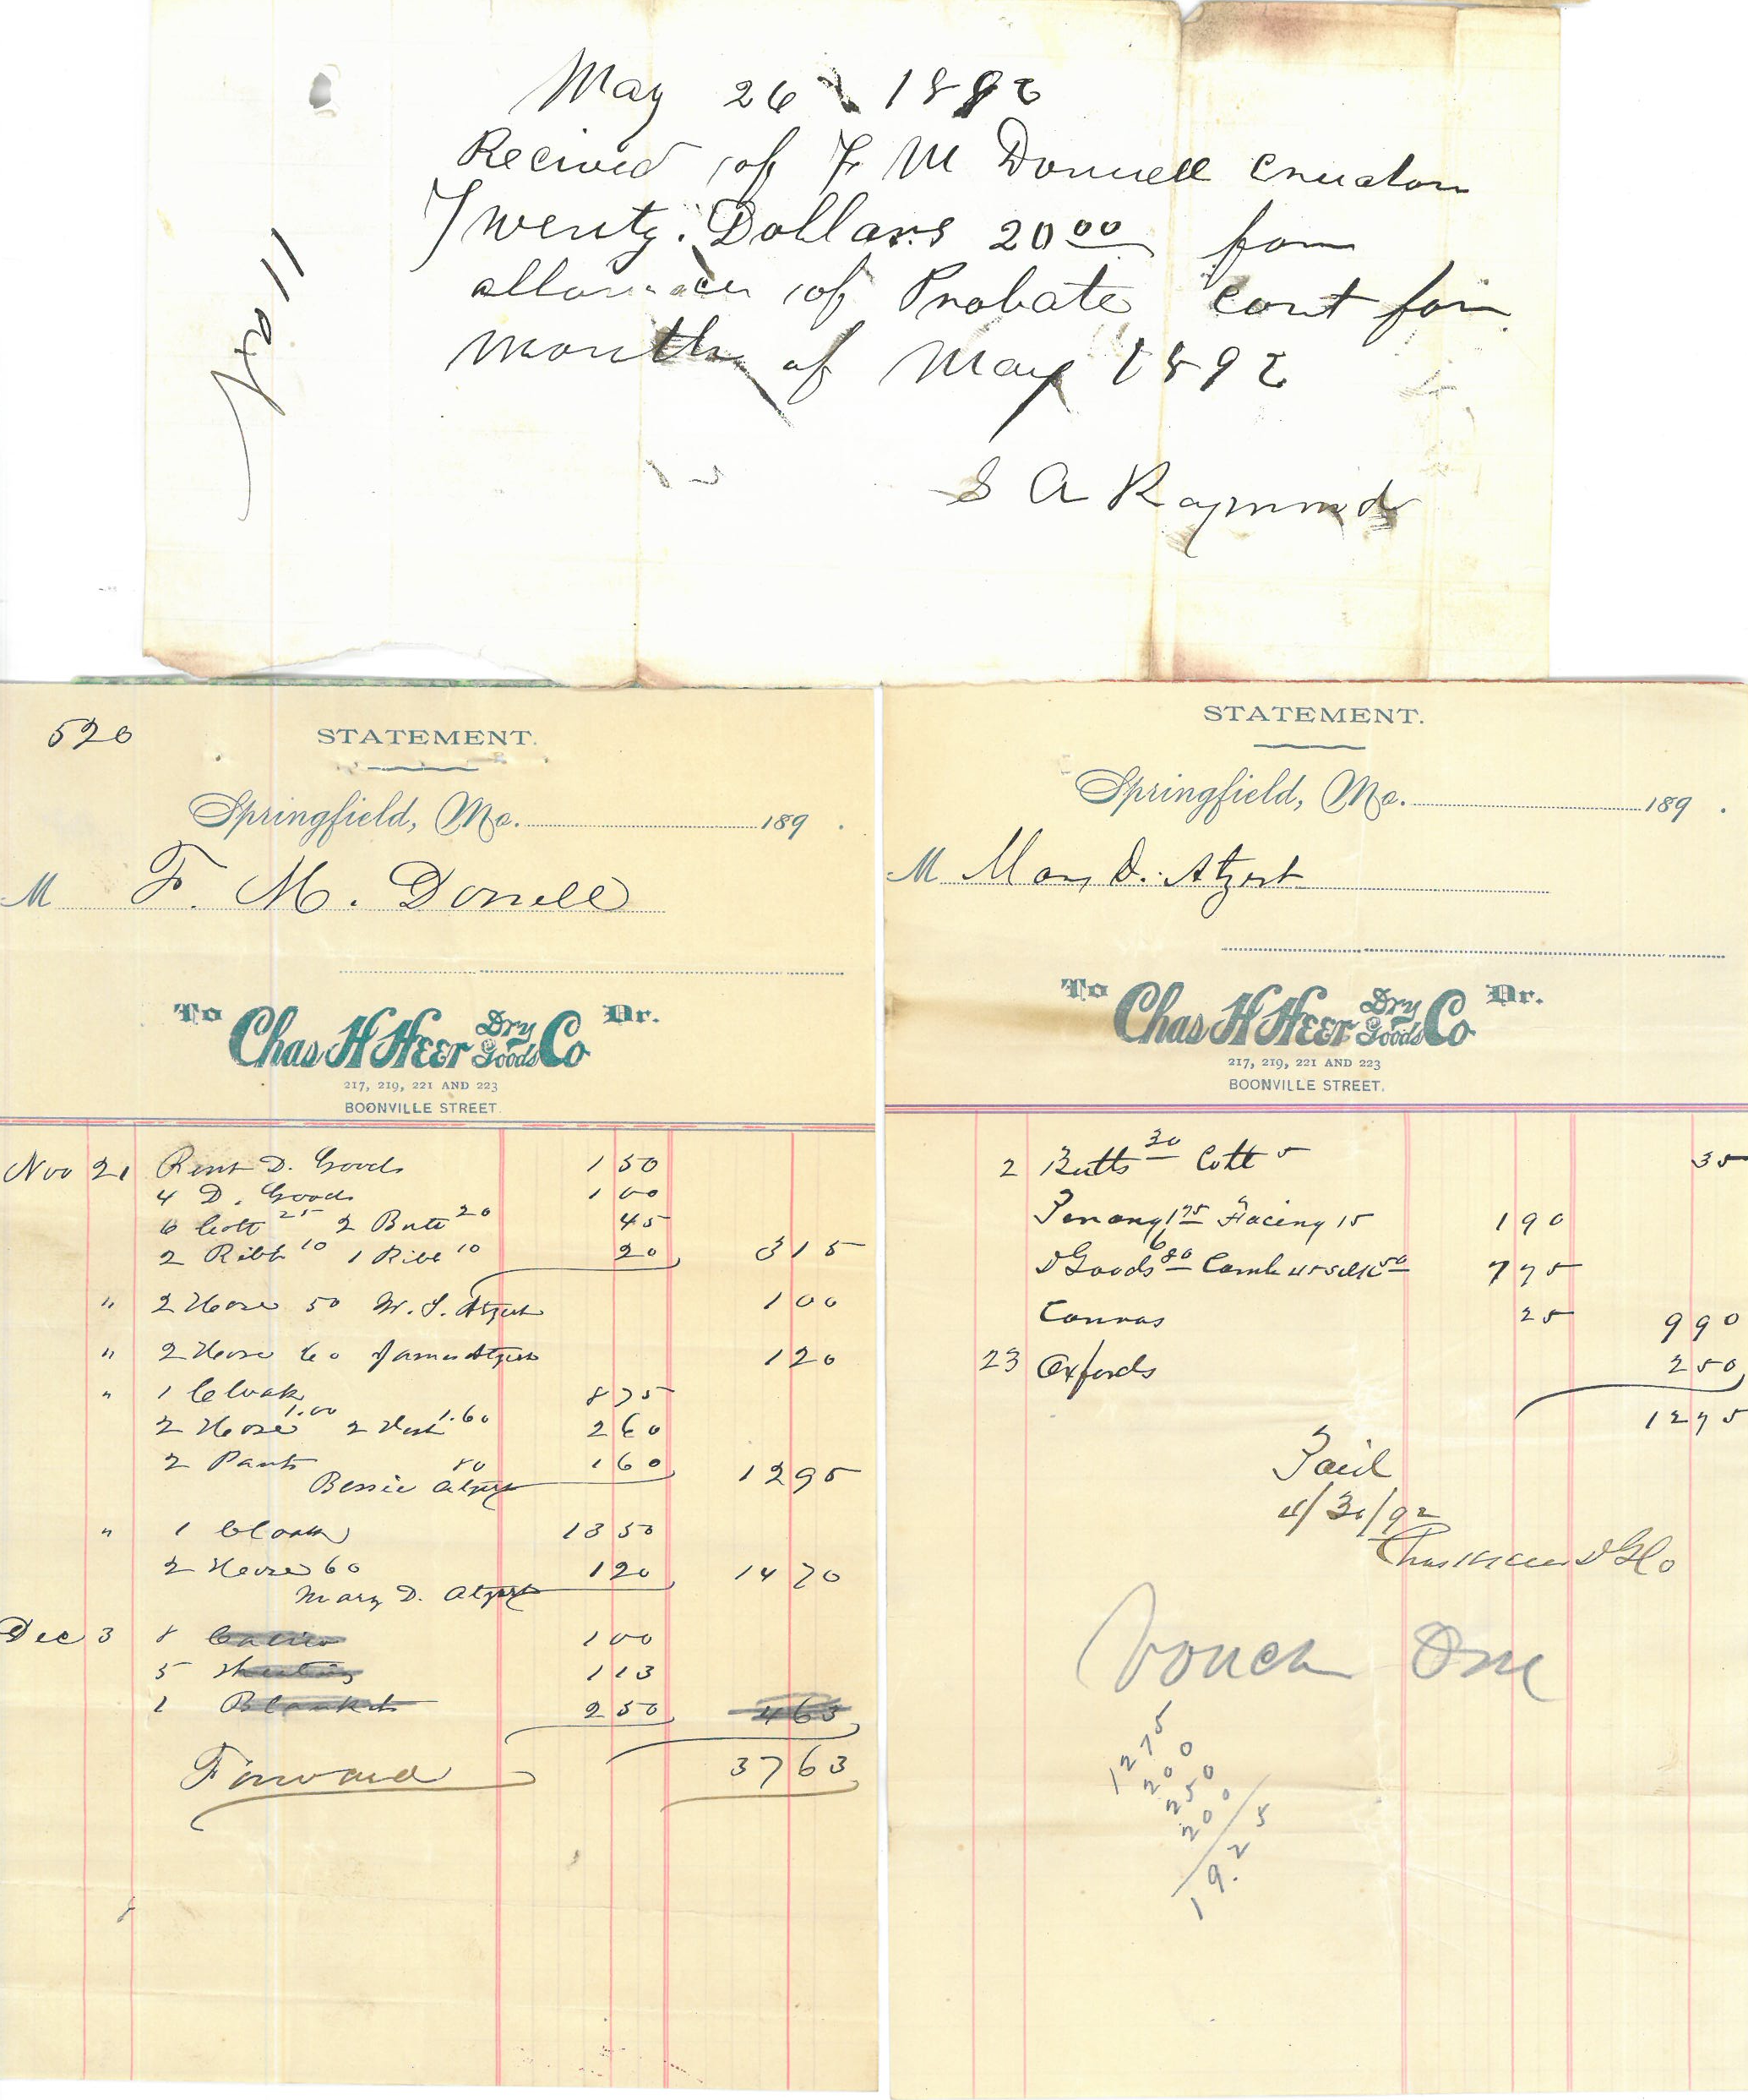 May 26 1892
Recived of F M Donnell Cruator
Twenty Dollars 20 00 for
allowance of Probate Cort for
month of May 1892
S A Raymond
No 11
520
STATEMENT.
Springfield, Mo. 189 .
M F. M. Donnell
To Chas H Heer Dry Goods Co Dr.
217, 219, 221 AND 223
BOONVILLE STREET.
Nov 21 Rent D. Goods 1 50
4 D. Goods 1 00
6 Cott 25 2 Butt 20 45
2 Ribb 10 1 Ribb 10 20 3 15
" 2 Hose 50 W. S. Atzert 1 00
" 2 Hose 60 James Atzert 1 20
" 1 Cloak 8 75
2 Hose 1.00 2 Vest 1.60 2 60
2 Pants 80 1 60 12 95
Bessie Atzert
" 1 Cloak 13 50
2 Hose 60 1 20 14 70
Mary D. Atzert
Dec 3 8 Calico 1 00
5 Sheeting 1 13
1 Blankets 2 50 4 63
Forward 37 63
STATEMENT.
Springfield, Mo. 189 .
M Mary D. Atzert
To Chas H Heer Dry Goods Co Dr.
217, 219, 221 AND 223
BOONVILLE STREET.
2 Butts 30 Cott 5 35
1 75 Facing 15 1 90
6 D Goods 80 Camb 45 Silk 50 7 75
Canvas 25 9 90
23 Oxfords 2 50
12 75
Paid
4/30/92
Chas H Heer D G Co
Vouch One
12 75
2 00
2 50
2 00
19.25